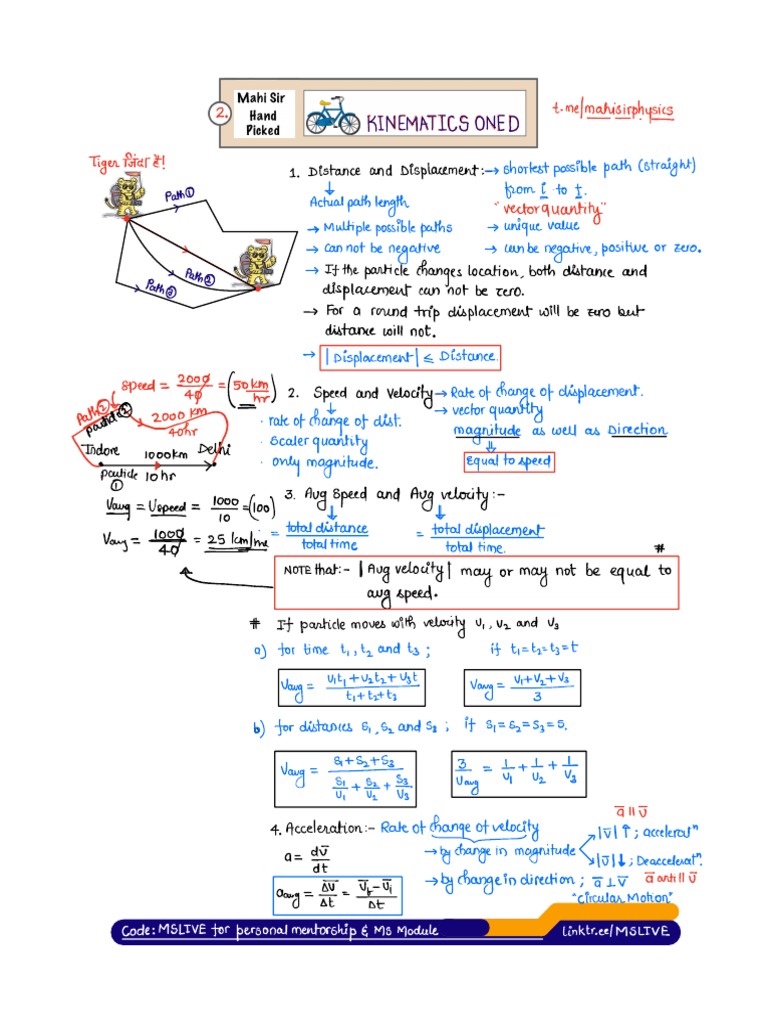 2.
Mahi Sir
Hand
Picked
KINEMATICS ONE D
t.me/mahisirphysics
Tiger जिंदा है!
Path①
Path②
Path③
1. Distance and Displacement:- → Shortest possible path (straight)
from i to f.
Actual path length
"vector quantity"
→ Multiple possible paths → unique value
→ Can not be negative → Can be negative, positive or zero.
→ If the particle changes location, both distance and
displacement can not be zero.
→ For a round trip displacement will be zero but
distance will not.
→ |Displacement| ≤ Distance.
Speed = 2000/40 = (50 km/hr)
Path②
particle②
2000 km
40hr
Indore
1000km
Delhi
particle
①
10 hr
Vavg = Uspeed = 1000/10 = (100)
Vavg = 1000/40 = 25 km/hr
2. Speed and Velocity → Rate of change of displacement.
· rate of change of dist. → vector quantity
· Scaler quantity magnitude as well as Direction
· only magnitude.
Equal to speed
3. Avg Speed and Avg velocity:-
= total distance/total time = total displacement/total time.
#
NOTE that:- |Avg velocity| may or may not be equal to
avg speed.
# If particle moves with velocity v1, v2 and v3
a) for time t1, t2 and t3 ; if t1=t2=t3=t
Vavg = (v1t1+v2t2+v3t)/(t1+t2+t2)
Vavg = (v1+v2+v3)/3
b) for distances s1, s2 and s3 ; if s1=s2=s3=s.
Vavg = (s1+s2+s3)/(s1/v1 + s2/v2 + s3/v3)
3/Vavg = 1/v1 + 1/v2 + 1/v3
4. Acceleration:- Rate of change of velocity
a̅ ∥ v̅
a = dv̅/dt
→ by change in magnitude
|v̅|↑; acceleratⁿ
|v̅|↓; Deacceleratⁿ.
aavg = Δv̅/Δt = (v̅f − v̅i)/Δt
→ by change in direction ; a̅ ⊥ v̅
a̅ anti ∥ v̅
"Circular Motion"
Code: MSLIVE for personal mentorship & MS Module
Linktr.ee/MSLIVE